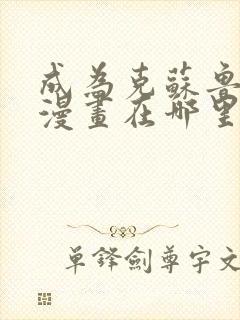 成為克蘇魯
漫畫在哪里
單鋒劍尊宇文